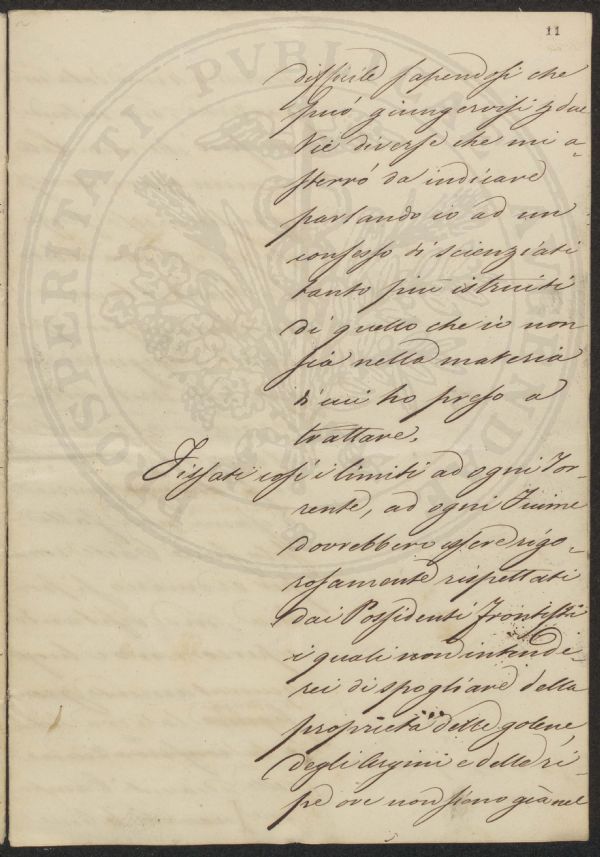 11
difficile sapendosi che
può giungervisi p due
Vie diverse che mi a-
sterrò da indicare
parlando io ad un
consesso di scienziati
tanto più istruiti
di quello che io non
sia nella materia
di cui ho preso a
trattare.
Fissati così i limiti ad ogni Tor-
rente, ad ogni Fiume
dovrebbero essere rigo-
rosamente rispettati
dai Possidenti Frontisti
i quali non intende-
rei di spogliare della
proprietà delle golene
degli Argini e delle ri-
pe ove non siono già nel
PROSPERITATI PVBLICAE AVGENDAE